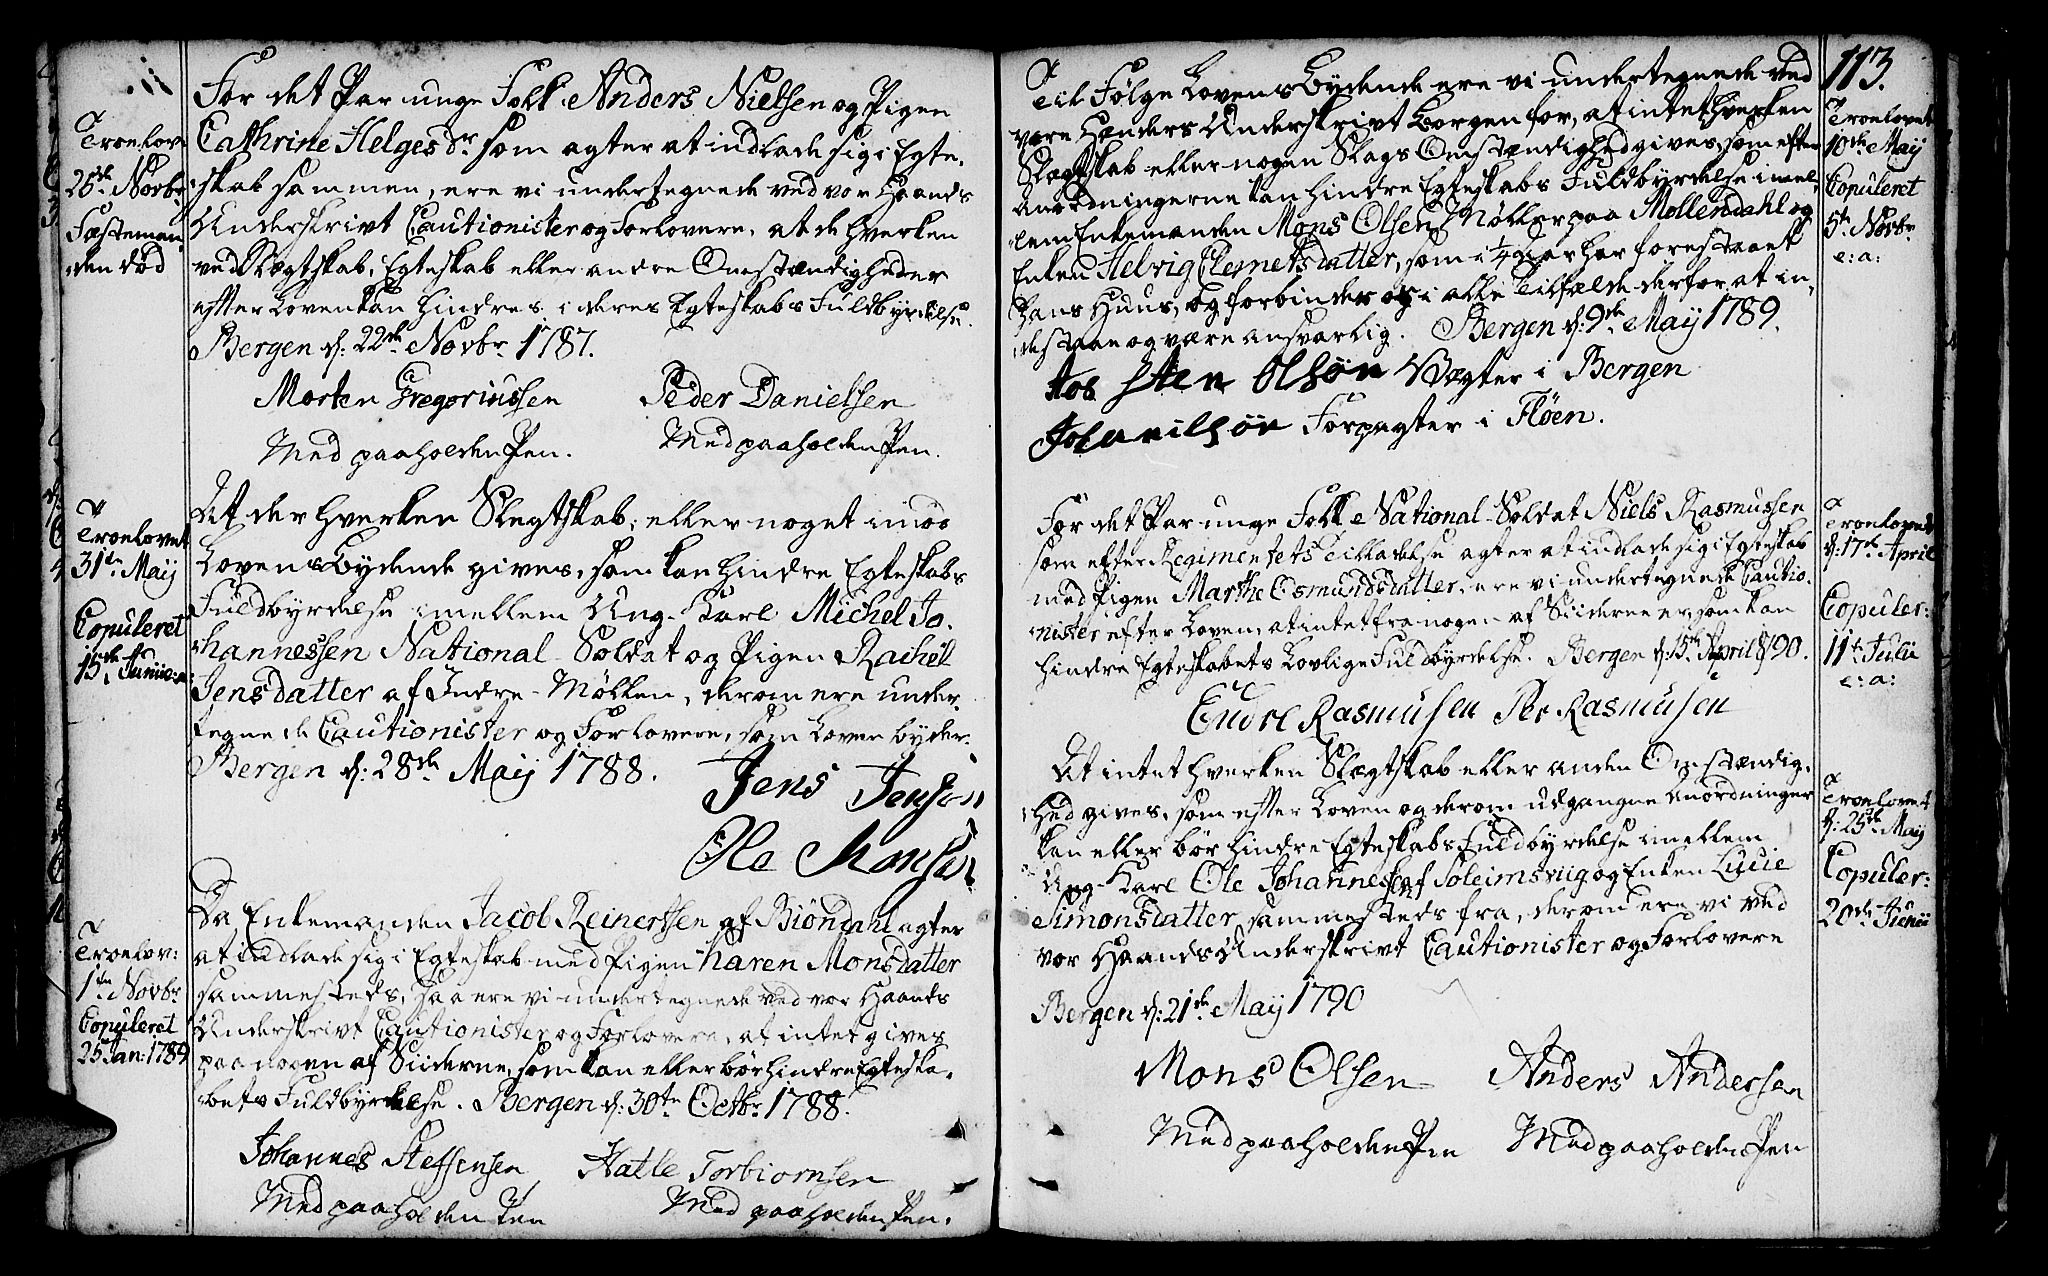 For det Par unge Folk Anders Nielsen og Pigen
Cathrine Helgesdr som agter at indlade sig i Egte,
skab sammen, ere vi undertegnede ved vor Haands
Underskrivt Cautionister og Forlovere, at de hverken
ved Slægtskab, Egteskab eller andre Omstændigheder
efter Loven kan hindres i deres Egteskabs Fuldbyrdelse.
Bergen d: 22de Novbr 1787.
Morten Gregoriussen Peder Danielsen
Med paaholden Pen. Med paaholden Pen.
Troelov
26de Novbr
Fæsteman
den død
At der hverken Slegtskab, eller noget imod
Lovens Bydende gives, som kan hindre Egteskabs
Fuldbyrdelse imellem Ung-Karl Michel Jo-
hannessen National-Soldat og Pigen Rachel
Jensdatter af Indre-Møllen, derom ere under-
tegnede Cautionister og Forlovere, som Loven byder.
Bergen d: 28de Maij 1788.
Jens Jenson
Ole Monsen
Troelovet
31te Maij
Copuleret
15de Junii e: a:
Da Enkemanden Jacob Reinertsen af Biöndahl agter
at indlade sig i Egteskab med Pigen Karen Monsdatter
sammesteds, saa ere vi undertegnede ved vor Haands
Underskrivt Cautionister og Forlovere, at intet gives
paa nogen af Siiderne, som kan eller bør hindre Egteska-
bets Fuldbyrdelse. Bergen d: 30te Octbr 1788.
Johannes Steffensen Hatle Torbiornsen
Med paaholden Pen Med paaholden Pen.
Troelov:
1ste Novbr
Copuleret
25 Jan: 1789
113.
Til Følge Lovens Bydende ere vi undertegnede ved
vore Hænders Underskrivt Borgen for, at intet hverken
Slægtskab eller nogen Slags Omstændighed gives, som efter
Anordningerne kan hindre Egteskabs Fuldbyrdelse imel,
lem Enkemanden Mons Olsen Møller paa Möllendahl og
Enken Helvrig Clemetsdatter, som i 1/4 Aar har forestaaet
hans Huus, og forbinder os i alle Tilfælde derfor at in,
destaae og være ansvarlig. Bergen d: 9de Maij 1789.
Sten Olsøn Vægter i Bergen
Forpagter i Fløen.
Troelovet
10de Maij
Copuleret
5te Novbr
e: a:
For det Par unge Folk e National-Soldat Niels Rasmussen
som efter Regimentets Tilladelse agter at indlade sig i Egteskab
med Pigen Marthe Osmundsdatter, ere vi undertegnede Cautio-
nister efter Loven, at intet fra nogen af Siiderne er, som kan
hindre Egteskabets Lovlige Fuldbyrdelse. Bergen d: 15de April 1790.
Endre Rasmusen Per Rasmusen
Troelovet
d: 17de April
Copuler:
11te Julii
e: a:
At intet hverken Slægtskab eller anden Omstændig-
hed gives, som efter Loven og derom udgangne Anordninger
kan eller bør hindre Egteskabs Fuldbyrdelse imellem
Ung-Karl Ole Johannessen af Soleimsviig og Enken Lucie
Simonsdatter sammesteds fra, derom ere vi ved
vor Haands Underskrivt Cautionister og Forlovere
Bergen d: 21de Maij 1790
Mons Olsen Anders Andersen
Med paaholden Pen Med paaholden Pen
Troelovet
d: 25de Maij
Copuler:
20de Junii